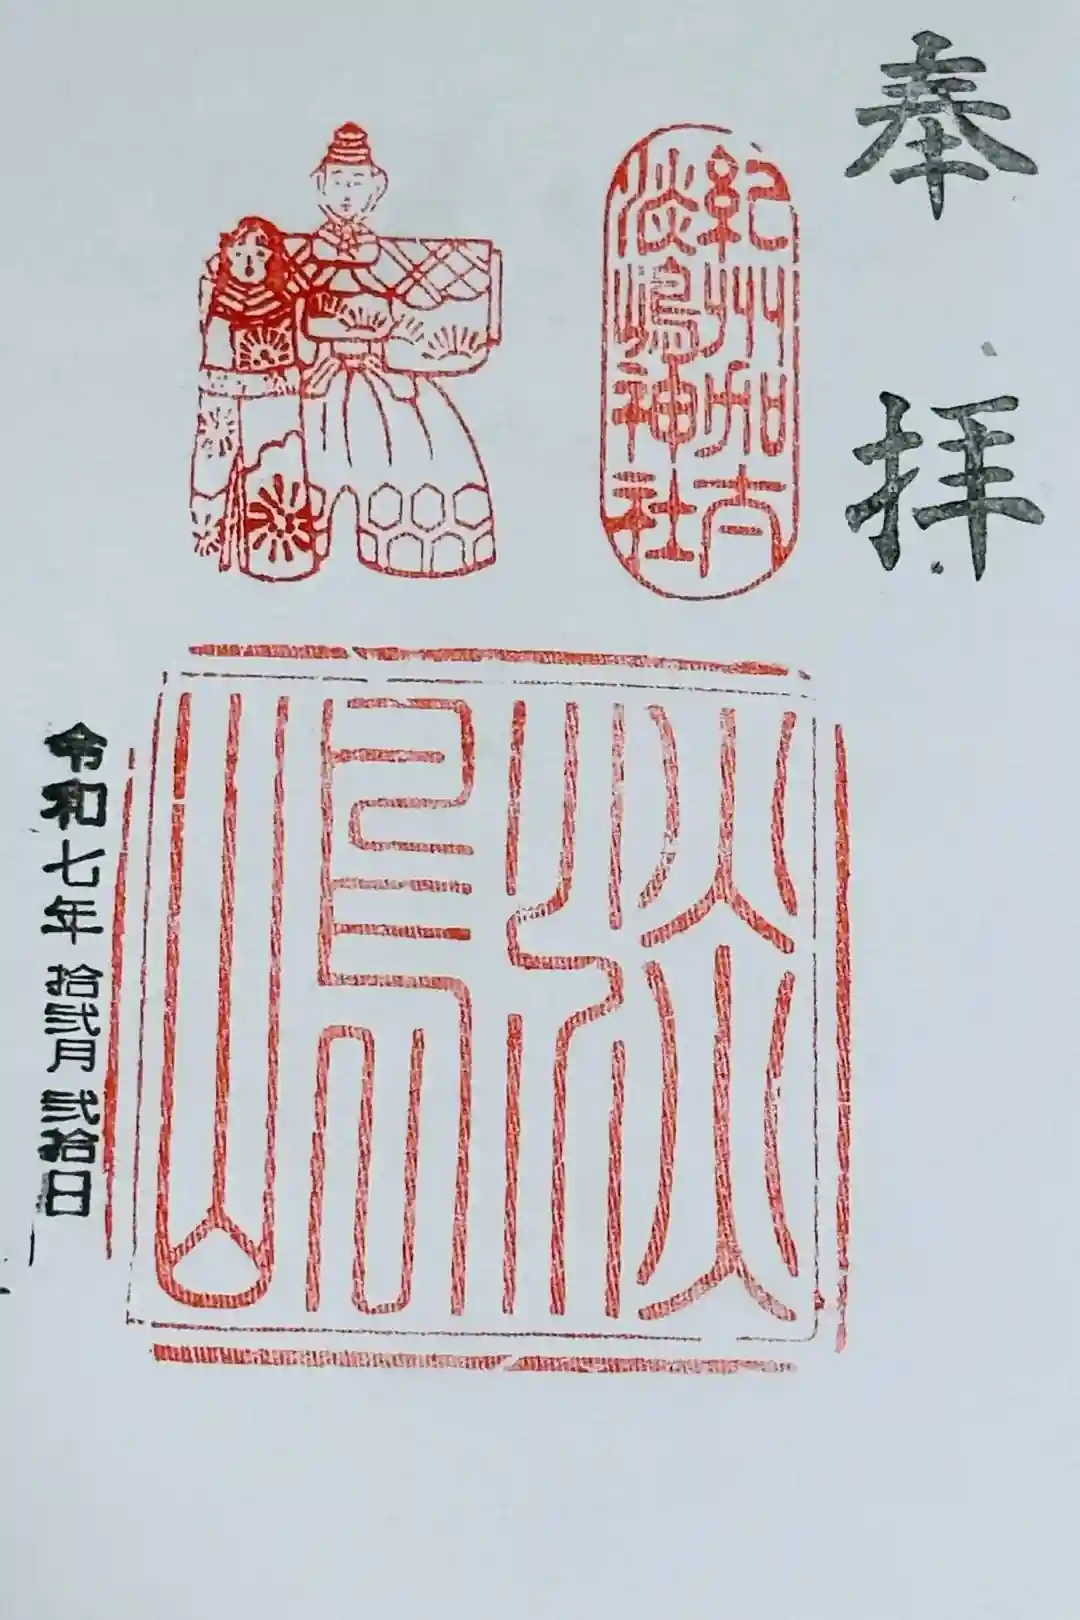 奉拝
紀州加太
淡嶋神社
淡嶋
令和七年拾弐月弐拾日